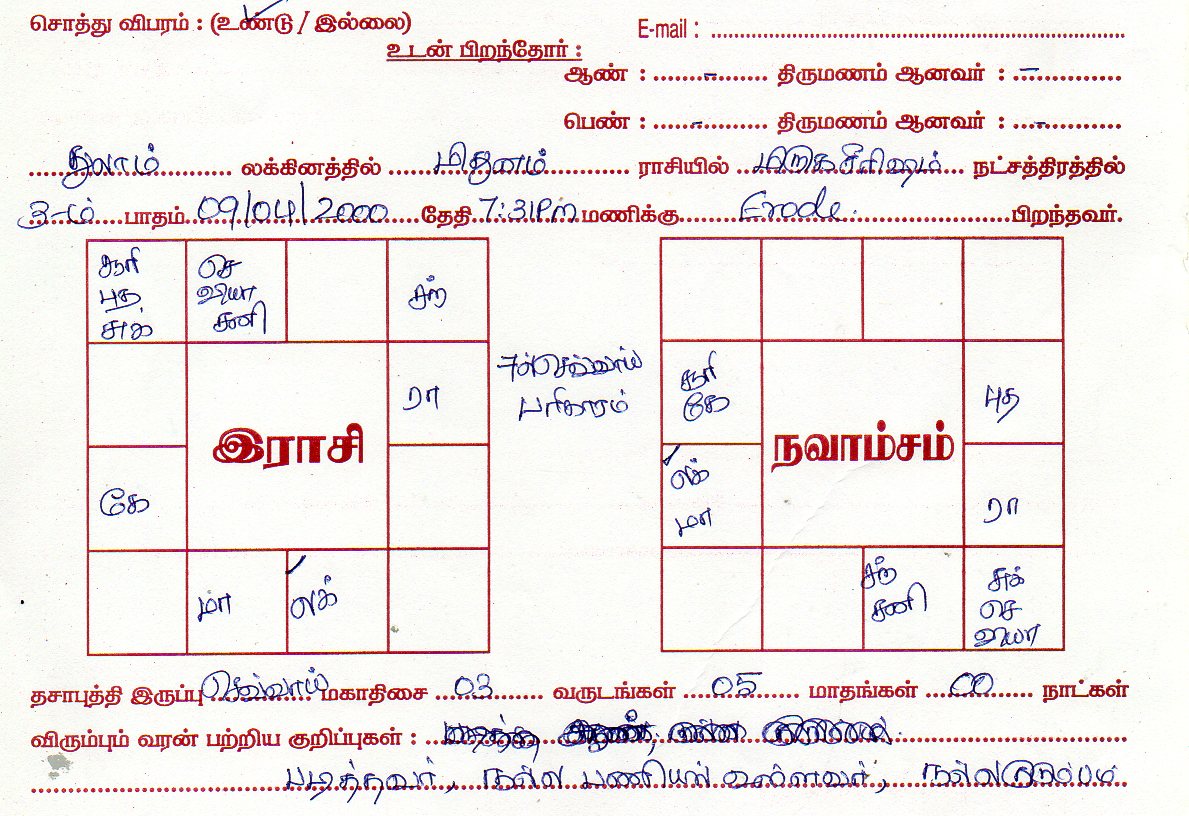 சொத்து விபரம் : (உண்டு / இல்லை)
E-mail :
உடன் பிறந்தோர் :
ஆண் : - திருமணம் ஆனவர் : -
பெண் : - திருமணம் ஆனவர் : -
துலாம் லக்கினத்தில் மிதுனம் ராசியில் மிருகசீரிஷம் நட்சத்திரத்தில்
3-ம் பாதம் 09/04/2000 தேதி 7:31Pm மணிக்கு Erode பிறந்தவர்.
சூரி
புத
சுக்
செ
வியா
சனி
சந்
ரா
கே
மா
லக்
இராசி
7ல் செவ்வாய்
பரிகாரம்
சூரி
கே
புத
லக்
மா
ரா
சந்
சனி
சுக்
செ
வியா
நவாம்சம்
தசாபுத்தி இருப்பு செவ்வாய் மகாதிசை 03 வருடங்கள் 05 மாதங்கள் 00 நாட்கள்
விரும்பும் வரன் பற்றிய குறிப்புகள் :
படித்தவர், நல்ல பணியில் உள்ளவர், நல்ல குடும்பம்